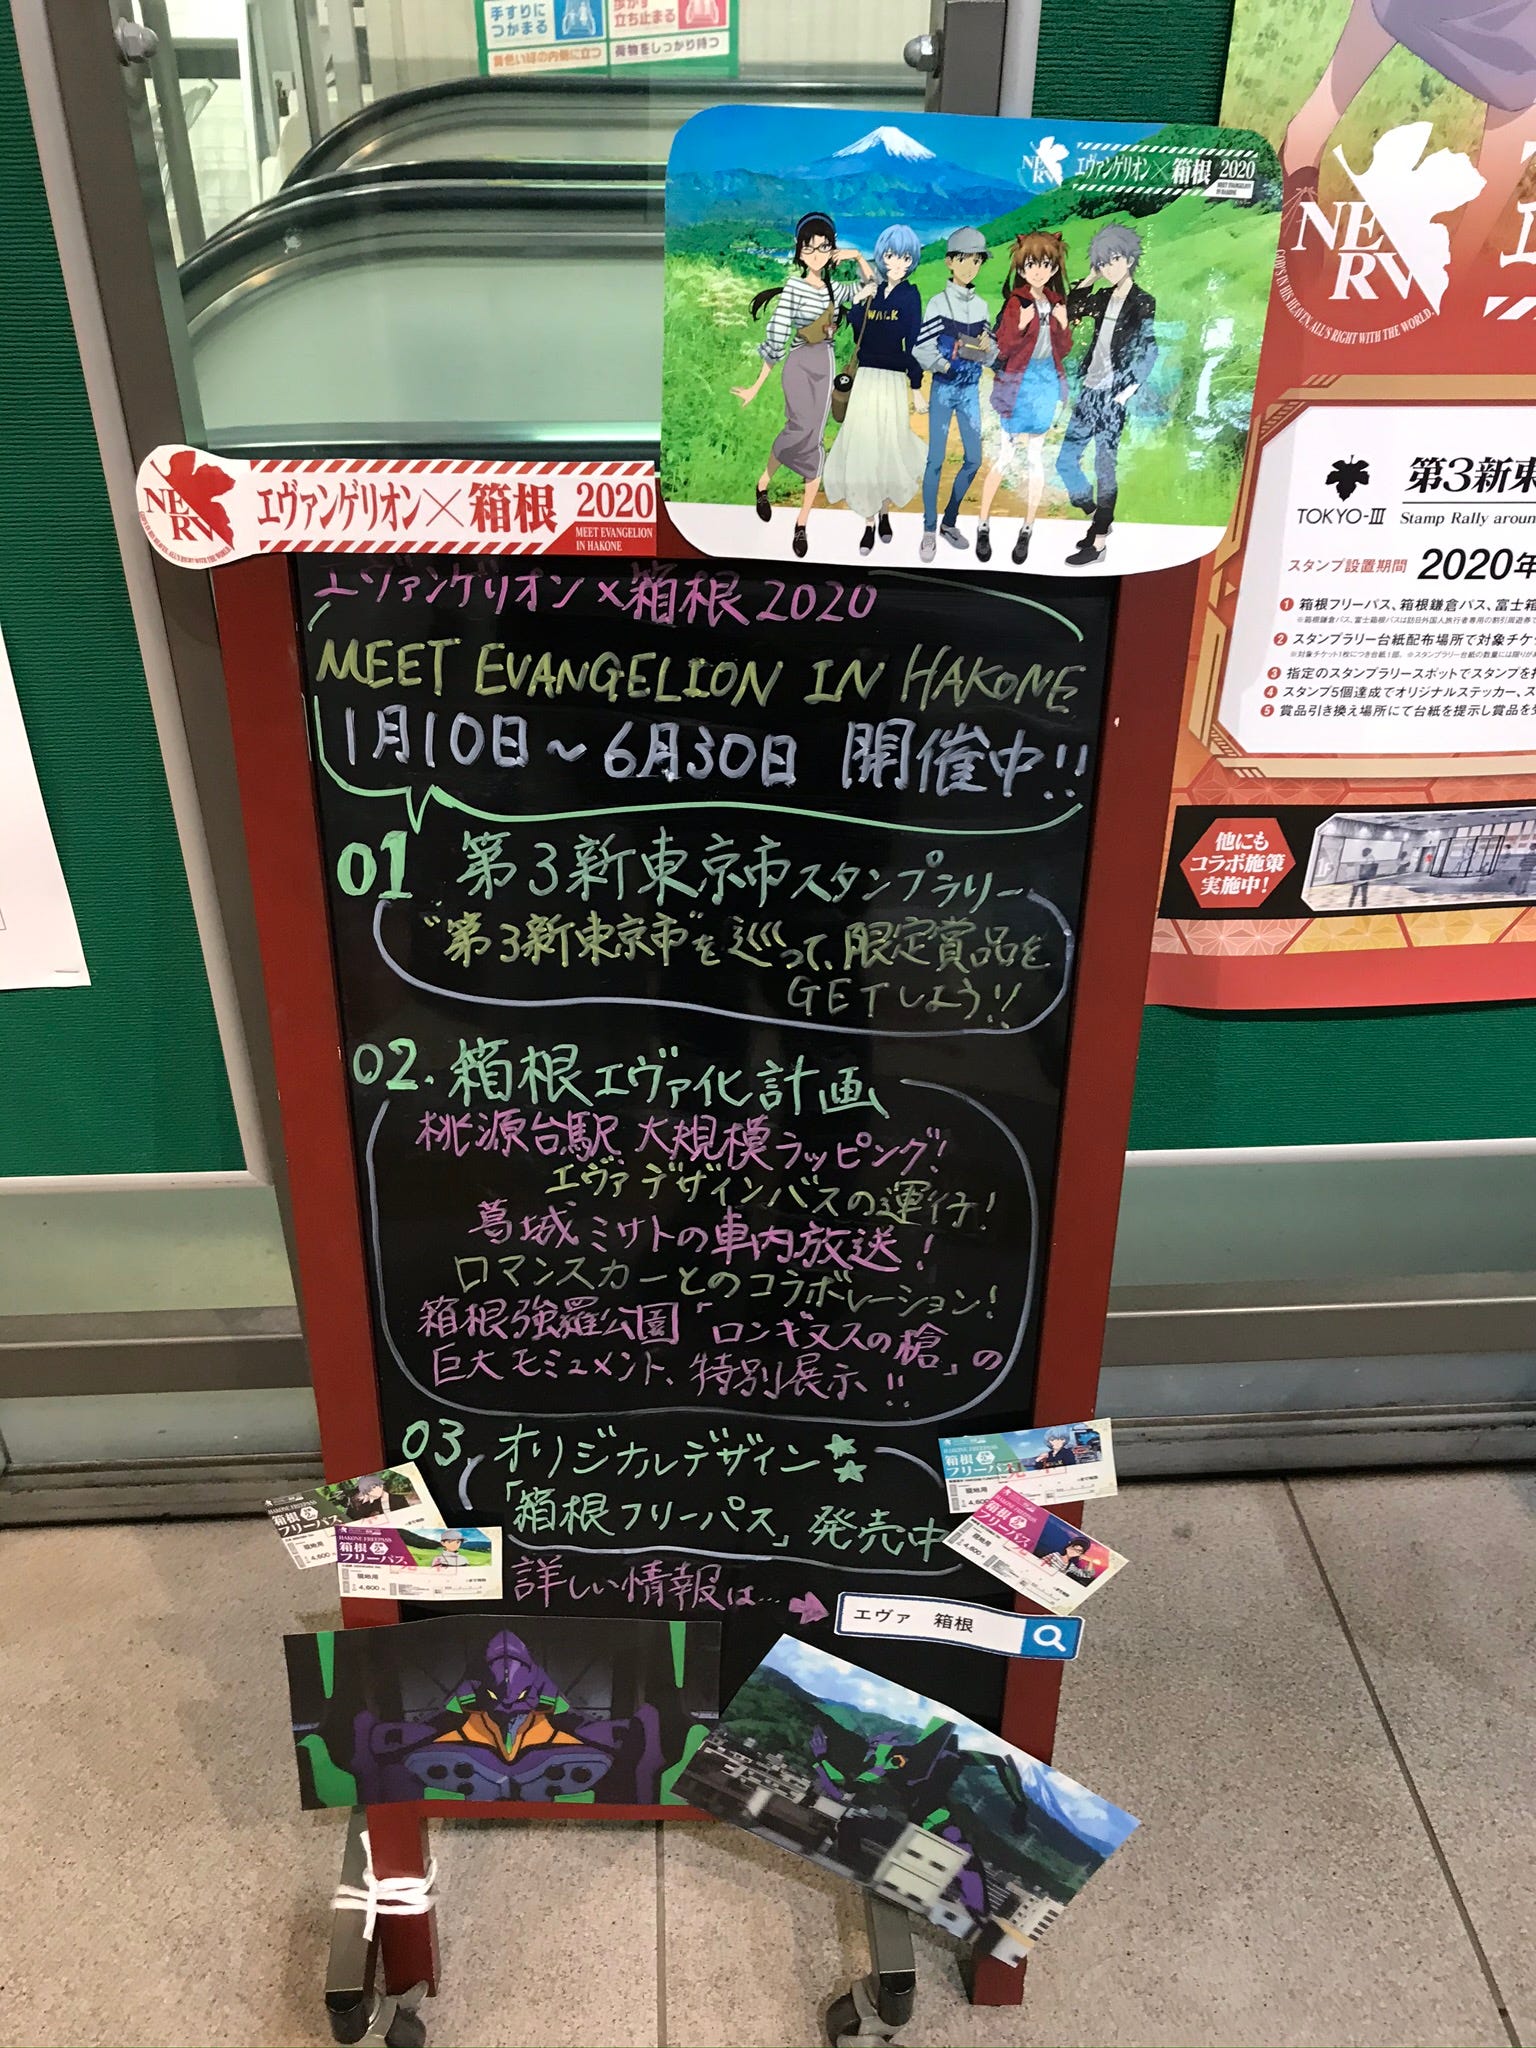 手すりに
つかまる
歩かず
立ち止まる
黄色い線の内側に立つ
荷物をしっかり持つ
NERV
エヴァンゲリオン×箱根 2020
MEET EVANGELION
IN HAKONE
WALK
NERV
GOD'S IN HIS HEAVEN. ALL'S RIGHT WITH THE WORLD.
NERV
エヴァンゲリオン×箱根 2020
MEET EVANGELION
IN HAKONE
エヴァンゲリオン×箱根2020
MEET EVANGELION IN HAKONE
1月10日～6月30日 開催中!!
01 第3新東京市スタンプラリー
"第3新東京市"を巡って、限定賞品を
GETしよう!!
02. 箱根エヴァ化計画
桃源台駅 大規模ラッピング!
エヴァデザインバスの運行!
葛城ミサトの車内放送!
ロマンスカーとのコラボレーション!
箱根強羅公園「ロンギヌスの槍」の
巨大モニュメント、特別展示!!
03 オリジナルデザイン
「箱根フリーパス」発売中
詳しい情報は…
エヴァ 箱根
HAKONE FREEPASS
箱根
フリーパス
現地用
4,600
HAKONE FREEPASS
箱根
フリーパス
現地用
4,600
HAKONE FREEPASS
箱根
フリーパス
現地用
4,600
箱根
フリーパス
現地用
4,600
TOKYO-III
第3新東
Stamp Rally aroun
スタンプ設置期間 2020年
1 箱根フリーパス、箱根鎌倉パス、富士箱
2 スタンプラリー台紙配布場所で対象チケ
3 指定のスタンプラリースポットでスタンプを
4 スタンプ5個達成でオリジナルステッカー、ス
5 賞品引き換え場所にて台紙を提示し賞品を
他にも
コラボ施策
実施中!